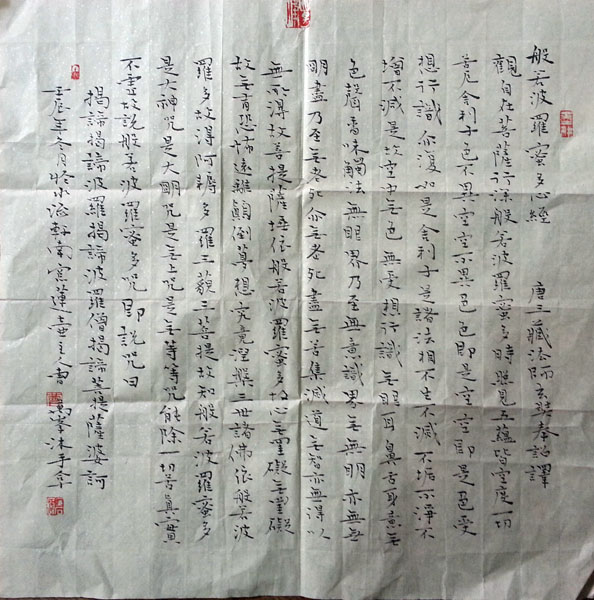 般若波羅蜜多心經 唐三藏法師玄奘奉詔譯
觀自在菩薩行深般若波羅蜜多時照見五蘊皆空度一切
苦厄舍利子色不異空空不異色色即是空空即是色受
想行識亦復如是舍利子是諸法相不生不滅不垢不淨不
增不減是故空中無色無受想行識無眼耳鼻舌身意無
色聲香味觸法無眼界乃至無意識界無無明亦無無
明盡乃至無老死亦無老死盡無苦集滅道無智亦無得以
無所得故菩提薩埵依般若波羅蜜多故心無罣礙無罣礙
故無有恐怖遠離顛倒夢想究竟涅槃三世諸佛依般若波
羅多故得阿耨多羅三藐三菩提故知般若波羅蜜多
是大神咒是大明咒是無上咒是無等等咒能除一切苦真實
不虛故說般若波羅蜜多咒即說咒曰
揭諦揭諦波羅揭諦波羅僧揭諦菩提薩婆訶
壬辰年冬月於軒南窗蓮壺主人書沐手